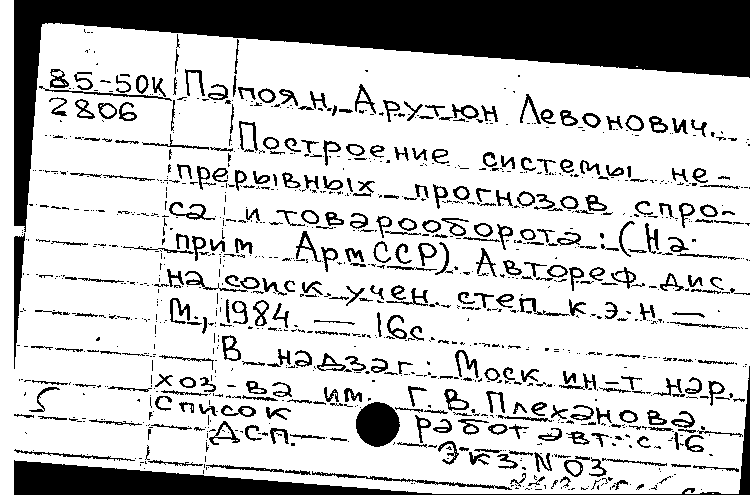 85-50К Папоян, Арутюн Левонович.
2806
Построение системы не-
прерывных прогнозов спро-
са и товарооборота: (На
прим АрмССР). Автореф дис.
на соиск учен степ к.э.н —
М., 1984 — 16с.
В надзаг: Моск ин-т нар.
хоз-ва им. Г.В.Плеханова.
Список работ авт.: с.16.
ДСП. Экз.N 03